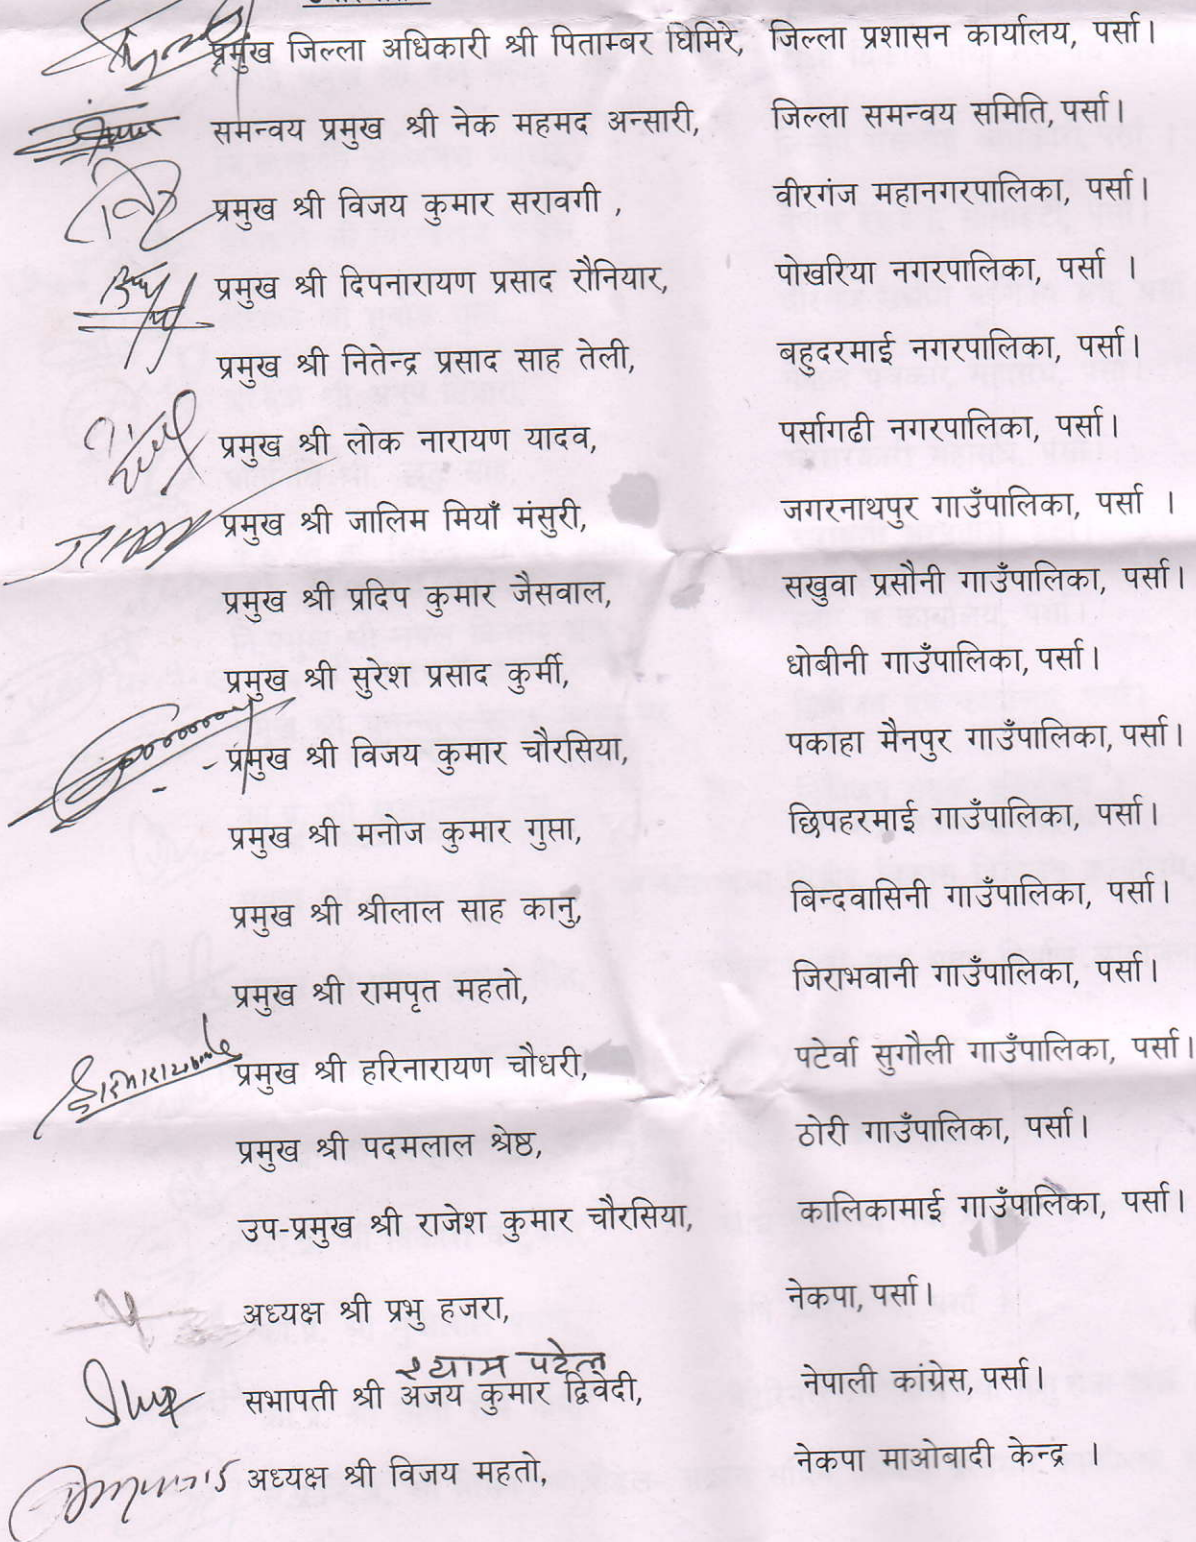 प्रमुख जिल्ला अधिकारी श्री पिताम्बर घिमिरे, जिल्ला प्रशासन कार्यालय, पर्सा।
समन्वय प्रमुख श्री नेक महमद अन्सारी, जिल्ला समन्वय समिति, पर्सा।
प्रमुख श्री विजय कुमार सरावगी , वीरगंज महानगरपालिका, पर्सा।
प्रमुख श्री दिपनारायण प्रसाद रौनियार, पोखरिया नगरपालिका, पर्सा ।
प्रमुख श्री नितेन्द्र प्रसाद साह तेली, बहुदरमाई नगरपालिका, पर्सा।
प्रमुख श्री लोक नारायण यादव, पर्सागढी नगरपालिका, पर्सा।
प्रमुख श्री जालिम मियाँ मंसुरी, जगरनाथपुर गाउँपालिका, पर्सा ।
प्रमुख श्री प्रदिप कुमार जैसवाल, सखुवा प्रसौनी गाउँपालिका, पर्सा।
प्रमुख श्री सुरेश प्रसाद कुर्मी, धोबीनी गाउँपालिका, पर्सा।
प्रमुख श्री विजय कुमार चौरसिया, पकाहा मैनपुर गाउँपालिका, पर्सा।
प्रमुख श्री मनोज कुमार गुप्ता, छिपहरमाई गाउँपालिका, पर्सा।
प्रमुख श्री श्रीलाल साह कानु, बिन्दवासिनी गाउँपालिका, पर्सा।
प्रमुख श्री रामपृत महतो, जिराभवानी गाउँपालिका, पर्सा।
प्रमुख श्री हरिनारायण चौधरी, पटेर्वा सुगौली गाउँपालिका, पर्सा।
प्रमुख श्री पदमलाल श्रेष्ठ, ठोरी गाउँपालिका, पर्सा।
उप-प्रमुख श्री राजेश कुमार चौरसिया, कालिकामाई गाउँपालिका, पर्सा।
अध्यक्ष श्री प्रभु हजरा, नेकपा, पर्सा।
श्याम पटेल
सभापती श्री अजय कुमार द्विवेदी, नेपाली कांग्रेस, पर्सा।
अध्यक्ष श्री विजय महतो, नेकपा माओबादी केन्द्र ।